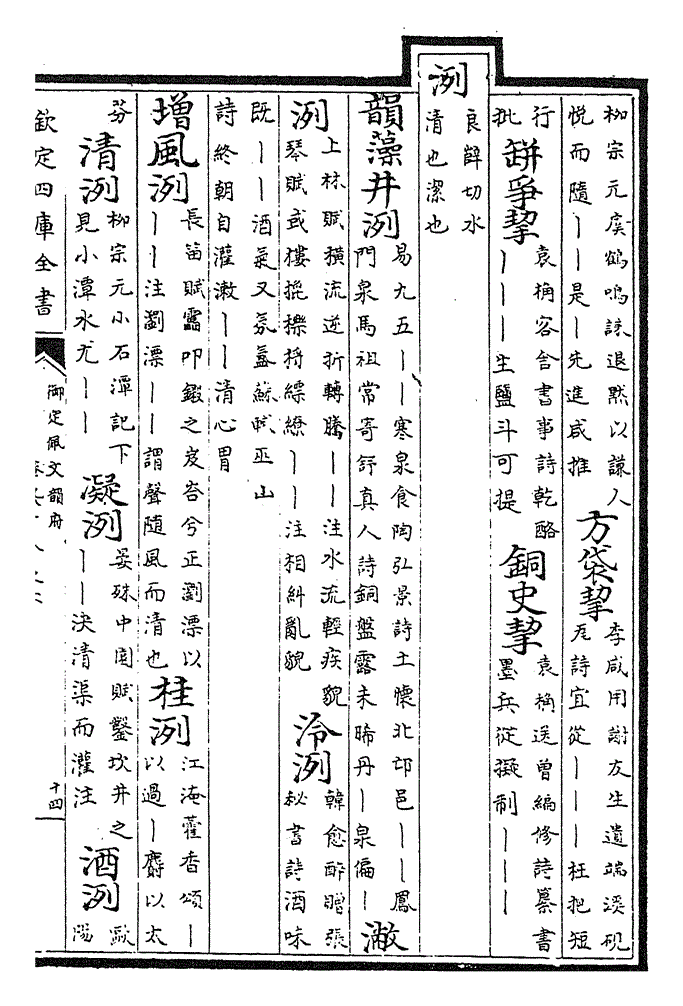 柳宗元虞鶴鳴誄退黙以謙人
悅而隨｜｜是｜先進咸推
方袋挈
李咸用謝友生遺端溪硯
瓦詩宜從｜｜｜枉把短
行
批
缾爭挈
袁桷容舍書事詩乾酪
｜｜｜生鹽斗可提
銅史挈
袁桷送曾編修詩纂書
墨兵從擬制｜｜｜
洌
良辥切水
清也潔也
韻藻井洌
易九五｜｜寒泉食陶弘景詩土懷北邙邑｜｜｜鳳
門泉馬祖常寄舒真人詩銅盤露未晞丹｜泉偏｜
潎
洌
上林賦横流逆折轉騰｜｜注水流輕疾貌
琴賦或摟㧙櫟捋縹繚｜｜注相糾亂貌
冷洌
韓愈醉贈張
秘書詩酒味
既｜｜酒氣又氛氲蘇軾巫山
詩終朝自灌漱｜｜清心胃
增風洌
長笛賦靁叩鍜之岌峇兮正瀏漂以
｜｜注瀏漂｜｜謂聲隨風而清也
桂洌
江淹藿香頌｜
以過｜麝以太
芬
清洌
柳宗元小石潭記下
見小潭水尤｜｜
凝洌
晏殊中園賦鑿坎井之
｜｜決清渠而灌注
酒洌
歐
陽
欽定四庫全書
御定佩文韻府
十四